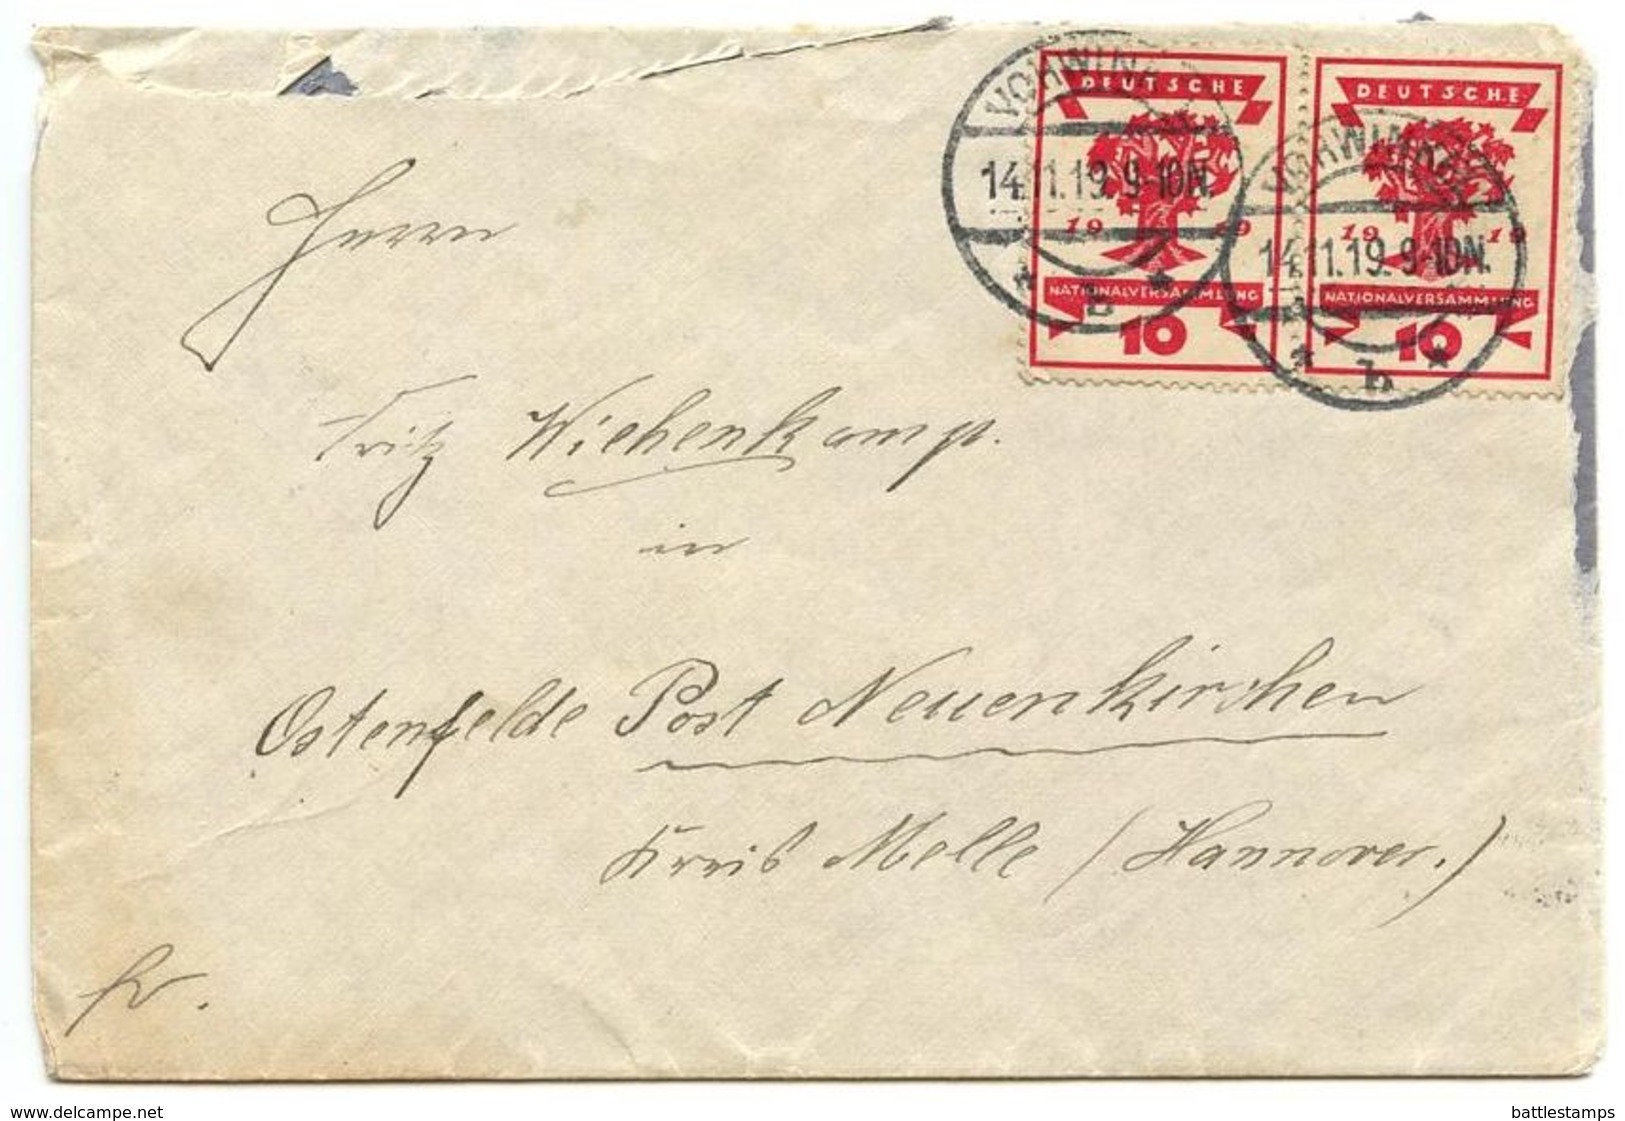 VOHWINKEL
14.11.19. 9-10N.
* b *
VOHWINKEL
14.11.19. 9-10N.
* b *
DEUTSCHE
1919
NATIONALVERSAMMLUNG
10
DEUTSCHE
1919
NATIONALVERSAMMLUNG
10
Herrn
Fritz Wiehenkamp.
in
Ostenfelde Post Neuenkirchen
Kreis Melle (Hannover.)
fr.
www.delcampe.net
battlestamps